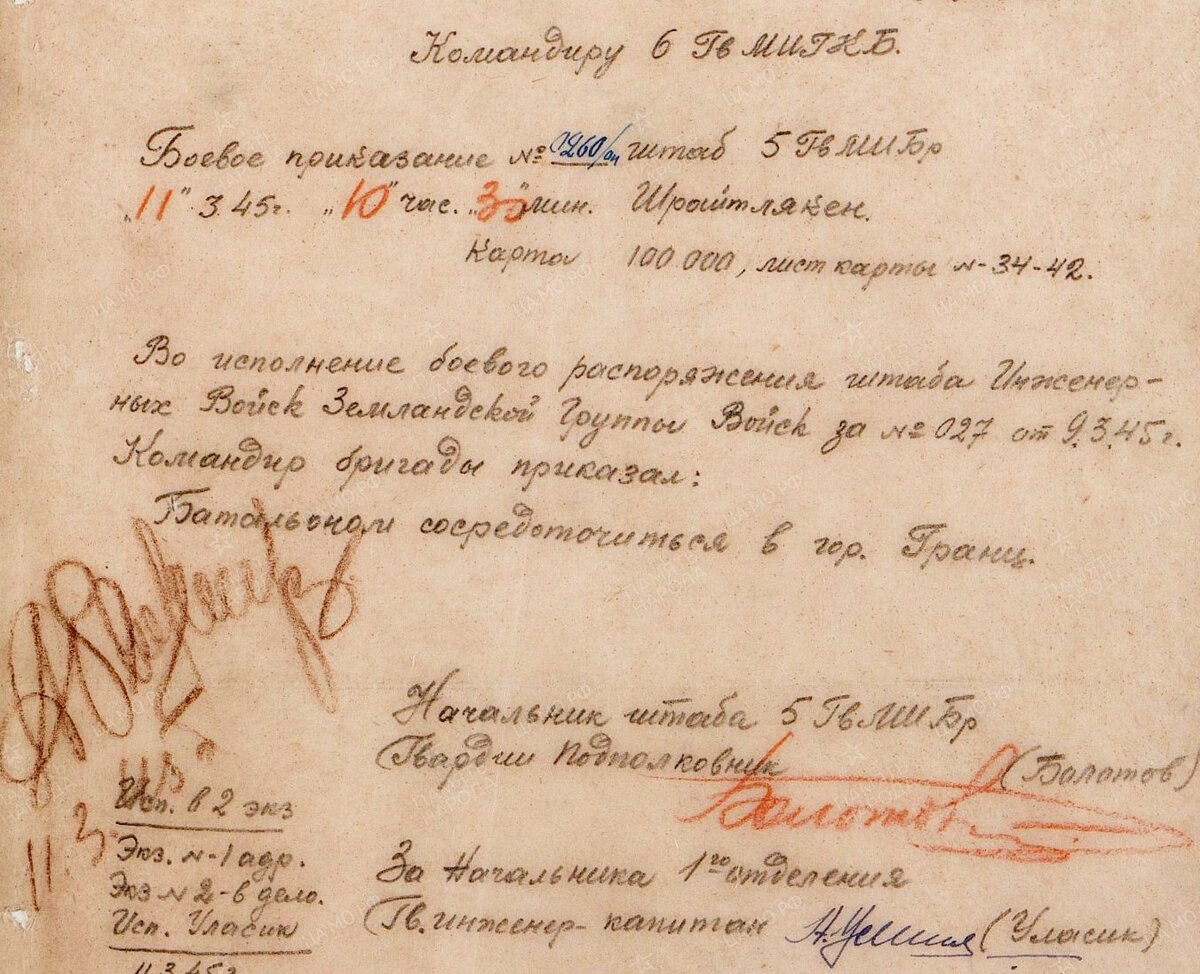 Командиру 6 ГвМИГКБ.
Боевое приказание № 0260/оп штаб 5 ГвМИБр
„11" 3.45г. „10" час. „30" мин. Шройтлякен.
Карта 100.000, лист карты N-34-42.
Во исполнение боевого распоряжения штаба Инженер-
ных Войск Земландской Группы Войск за № 027 от 9.3.45г.
Командир бригады приказал:
Батальоном сосредоточиться в гор. Гранц.
Начальник штаба 5 ГвМШБр
Гвардии Подполковник (Балатов)
Болотов
Исп. в 2 экз
Экз. N-1 адр.
Экз N 2-в дело.
Исп. Уласик
11.3.45г
11 3
За Начальника 1го отделения
Гв. инженер-капитан (Уласик)